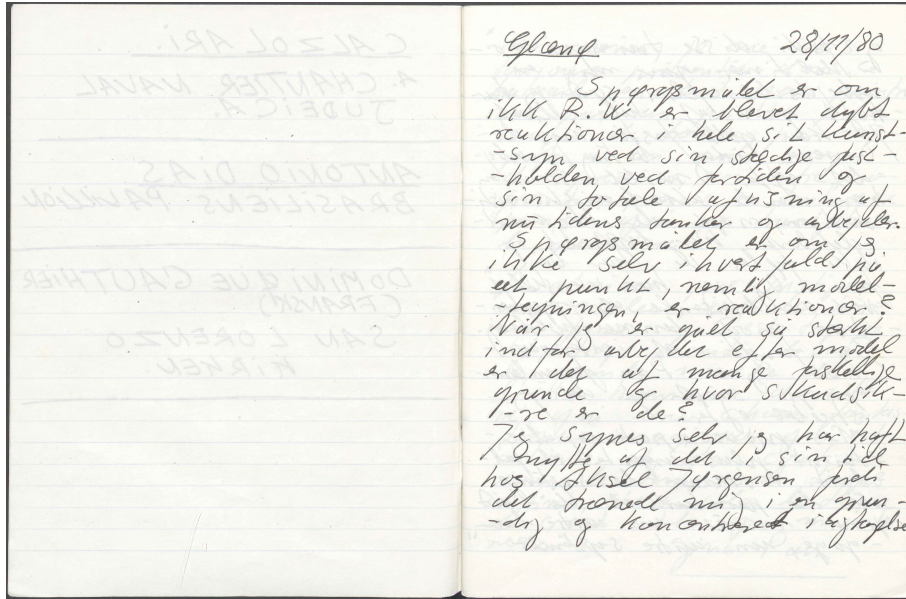 28/11/80
Spørgsmålet er om
ikk R.W er blevet dybt
reaktionær i hele sit kunst-
-syn ved sin stædige fast-
-holden ved fortiden og
sin totale afvisning af
nutidens tanker og arbejder.
Spørgsmålet er om jeg
ikke selv ihvert fald på
eet punkt, nemlig model-
-tegningen, er reaktionær?
Når jeg er gået så stærkt
ind for arbejdet efter model
er det af mange forskellige
grunde og hvor skudsik-
-re er de?
Jeg synes selv jeg har haft
nytte af det i sin tid
hos Aksel Jørgensen fordi
det trænede mig i en grun-
-dig og koncentreret iagttagelse